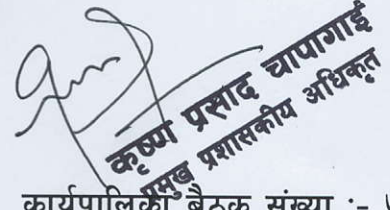 कृष्ण प्रसाद चापागाई
प्रमुख प्रशासकीय अधिकृत
कार्यपालिका बैठक संख्या :-